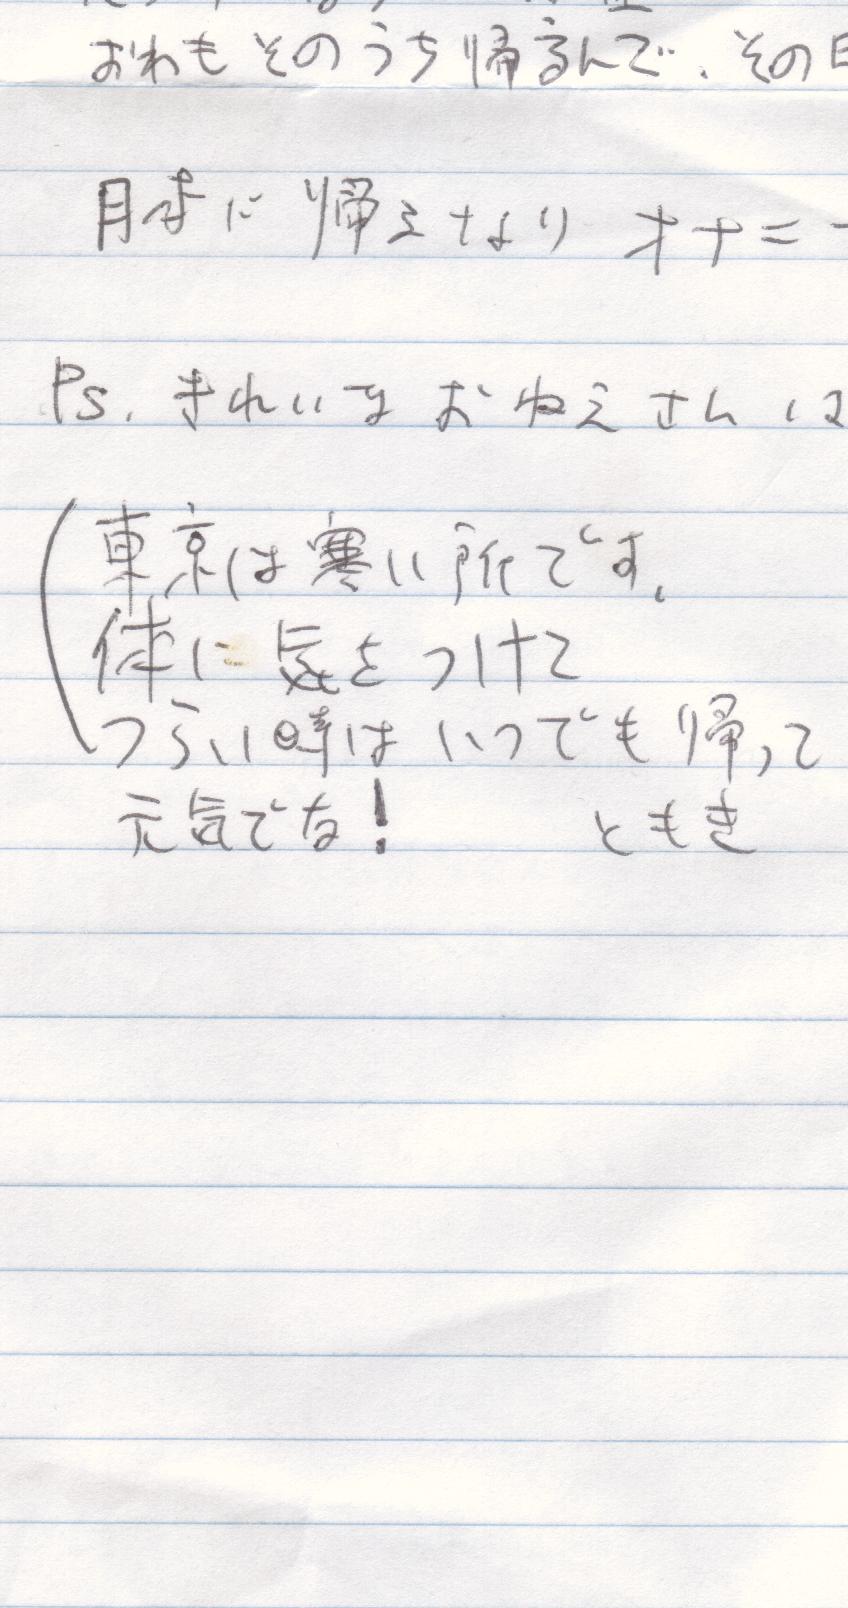 おれもそのうち帰るんで、その日
月末に帰えなり オナニー
Ps. きれいなおねえさんは
東京は寒い所です。
体に気をつけて
つらい時はいつでも帰って
元気でな! ともき